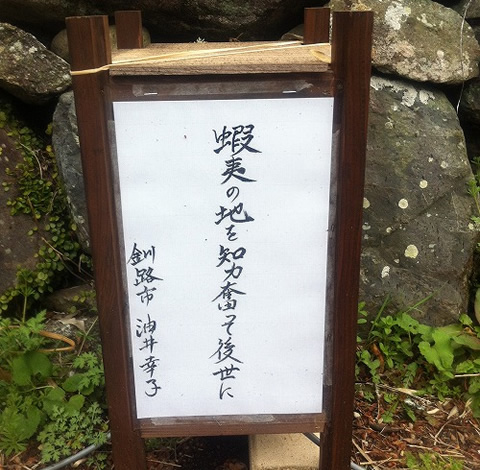 蝦夷の地を知力奮って後世に
釧路市 油井幸子